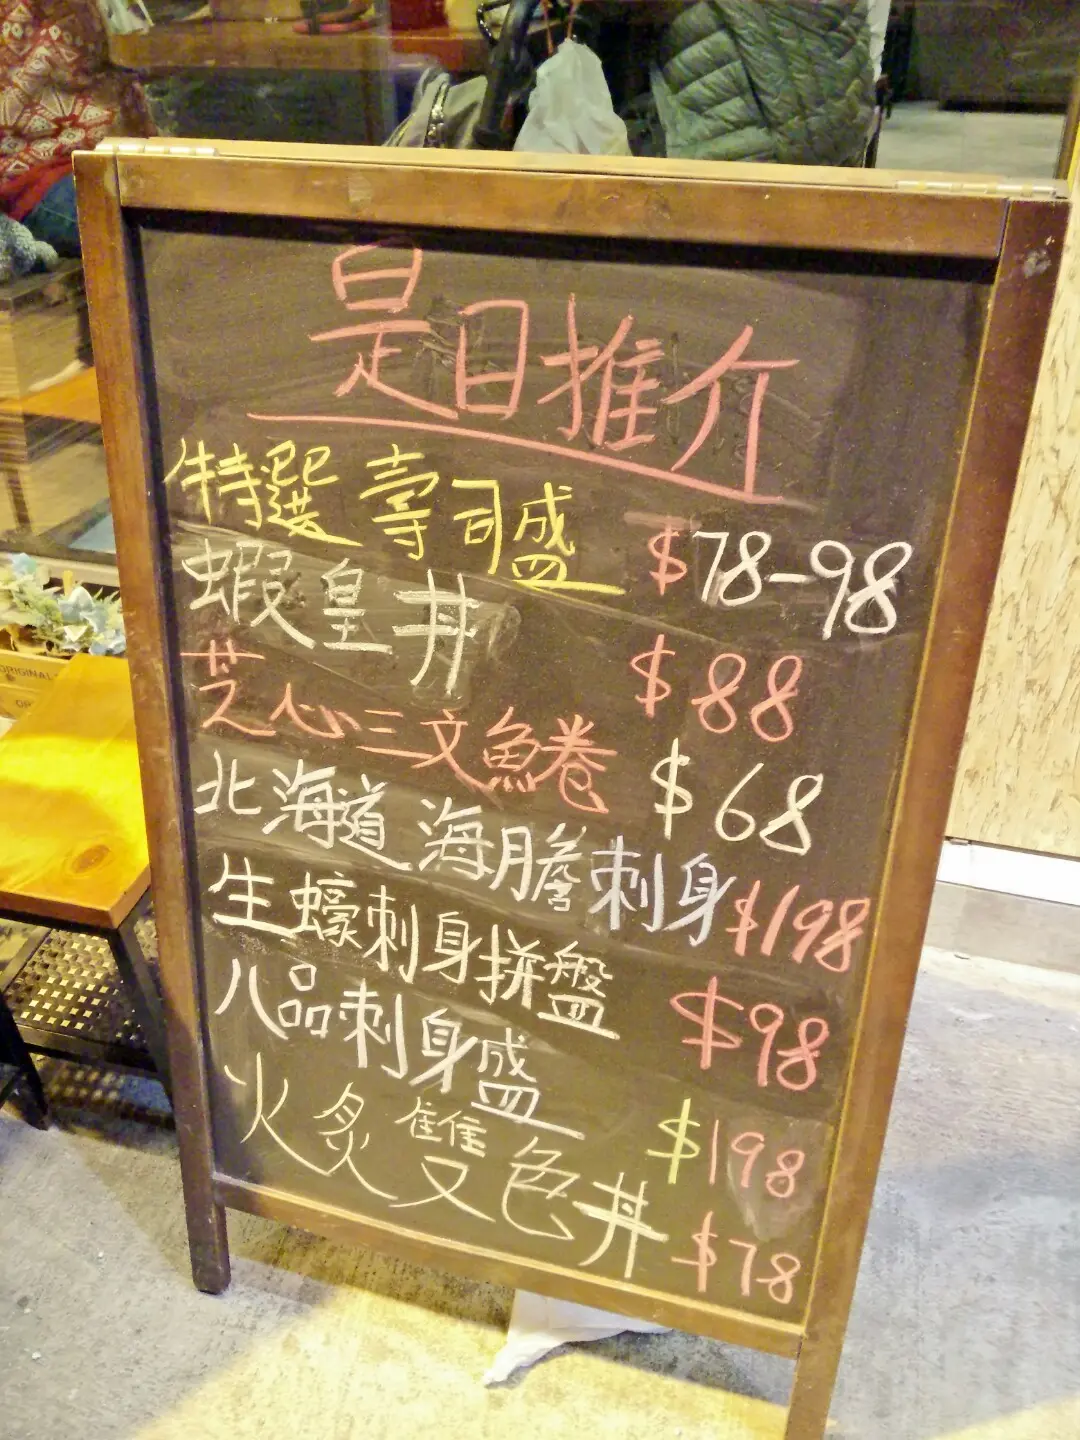 是日推介
特選壽司盛 $78-98
蝦皇丼 $88
芝心三文魚卷 $68
北海道海膽刺身 $198
生蠔刺身拼盤 $98
八品刺身盛 $198
火炙雙色丼 $78
ORIGINAL